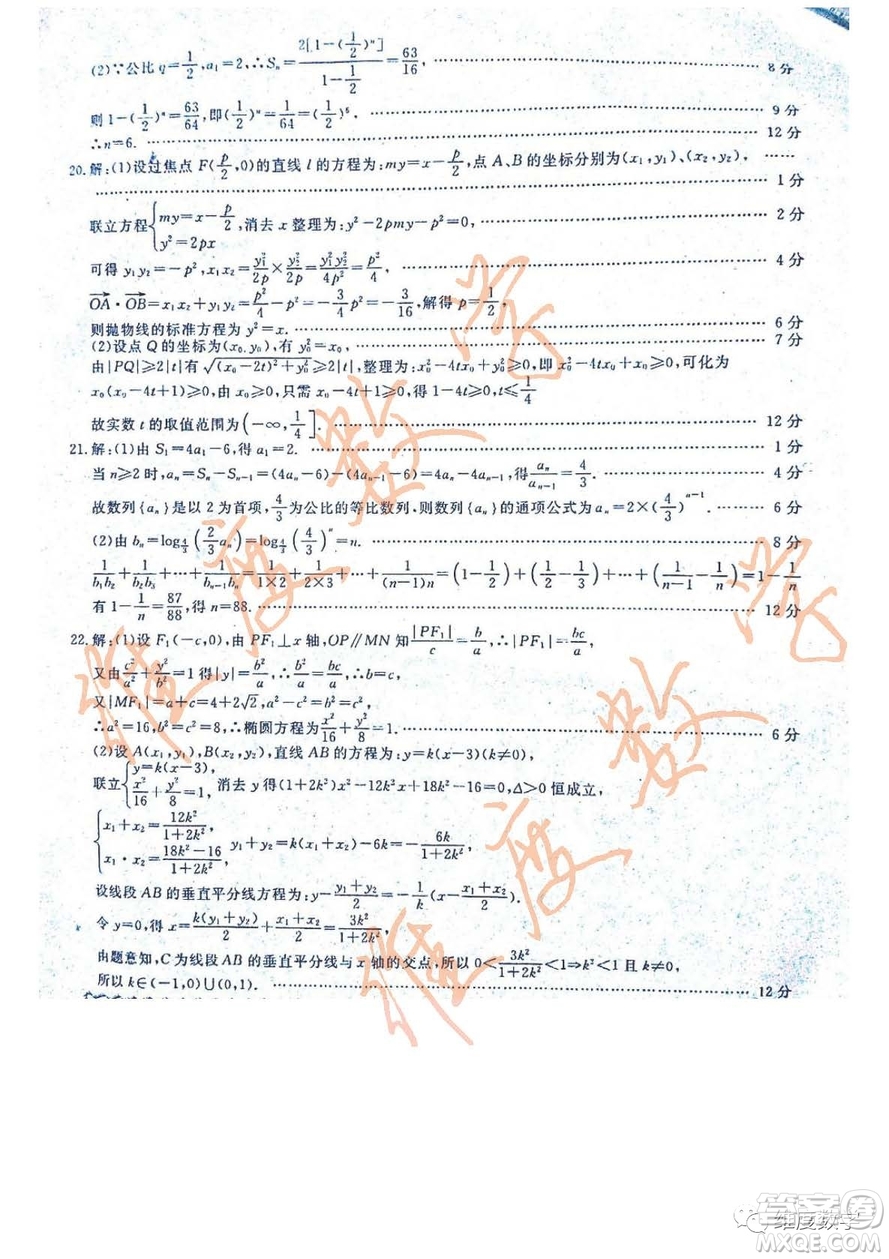 (2)∵公比 q=1/2,a₁=2,∴Sₙ=2[1-(1/2)ⁿ]/(1-1/2)=63/16, …… 8 分
则 1-(1/2)ⁿ=63/64,即(1/2)ⁿ=1/64=(1/2)⁶. …… 9 分
∴n=6. …… 12 分
20.解:(1)设过焦点 F(p/2,0)的直线 l 的方程为:my=x-p/2,点 A、B 的坐标分别为(x₁,y₁)、(x₂,y₂), ……
…… 1 分
联立方程{my=x-p/2, y²=2px ,消去 x 整理为:y²-2pmy-p²=0, …… 2 分
可得 y₁y₂=-p²,x₁x₂=y₁²/2p×y₂²/2p=y₁²y₂²/4p²=p²/4, …… 4 分
OA·OB=x₁x₂+y₁y₂=p²/4-p²=-3/4p²=-3/16,解得 p=1/2,
则抛物线的标准方程为 y²=x. …… 6 分
(2)设点 Q 的坐标为(x₀,y₀),有 y₀²=x₀, …… 7 分
由|PQ|≥2|t|有√((x₀-2t)²+y₀²)≥2|t|,整理为:x₀²-4tx₀+y₀²≥0,即 x₀²-4tx₀+x₀≥0,可化为
x₀(x₀-4t+1)≥0,由 x₀≥0,只需 x₀-4t+1≥0,得 1-4t≥0,t≤1/4
故实数 t 的取值范围为(-∞,1/4]. …… 12 分
21.解:(1)由 S₁=4a₁-6,得 a₁=2. …… 1 分
当 n≥2 时,aₙ=Sₙ-Sₙ₋₁=(4aₙ-6)-(4aₙ₋₁-6)=4aₙ-4aₙ₋₁,得 aₙ/aₙ₋₁=4/3. …… 4 分
故数列{aₙ}是以 2 为首项,4/3为公比的等比数列,则数列{aₙ}的通项公式为 aₙ=2×(4/3)ⁿ⁻¹. …… 6 分
(2)由 bₙ=log_{4/3}(2/3aₙ)=log_{4/3}(4/3)ⁿ=n. …… 8 分
1/b₁b₂+1/b₂b₃+…+1/bₙ₋₁bₙ=1/1×2+1/2×3+…+1/(n-1)n=(1-1/2)+(1/2-1/3)+…+(1/(n-1)-1/n)=1-1/n
有 1-1/n=87/88,得 n=88. …… 12 分
22.解:(1)设 F₁(-c,0),由 PF₁⊥x 轴,OP∥MN 知|PF₁|/c=b/a,∴|PF₁|=bc/a,
又由c²/a²+y²/b²=1 得|y|=b²/a,∴b²/a=bc/a,∴b=c,
又|MF₁|=a+c=4+2√2,a²-c²=b²,
∴a²=16,b²=c²=8,∴椭圆方程为x²/16+y²/8=1. …… 6 分
(2)设 A(x₁,y₁),B(x₂,y₂),直线 AB 的方程为:y=k(x-3)(k≠0),
联立{y=k(x-3), x²/16+y²/8=1, 消去 y 得(1+2k²)x²-12k²x+18k²-16=0,Δ>0 恒成立,
{x₁+x₂=12k²/(1+2k²), x₁·x₂=(18k²-16)/(1+2k²), y₁+y₂=k(x₁+x₂)-6k=-6k/(1+2k²),
设线段 AB 的垂直平分线方程为:y-(y₁+y₂)/2=-1/k(x-(x₁+x₂)/2).
令 y=0,得 x=k(y₁+y₂)/2+(x₁+x₂)/2=3k²/(1+2k²)
由题意知,C 为线段 AB 的垂直平分线与 x 轴的交点,所以 0<3k²/(1+2k²)<1⇒k²<1 且 k≠0,
所以 k∈(-1,0)∪(0,1). …… 12 分
维度数学
维度数学
维度数学
答案圈
MXQE.COM